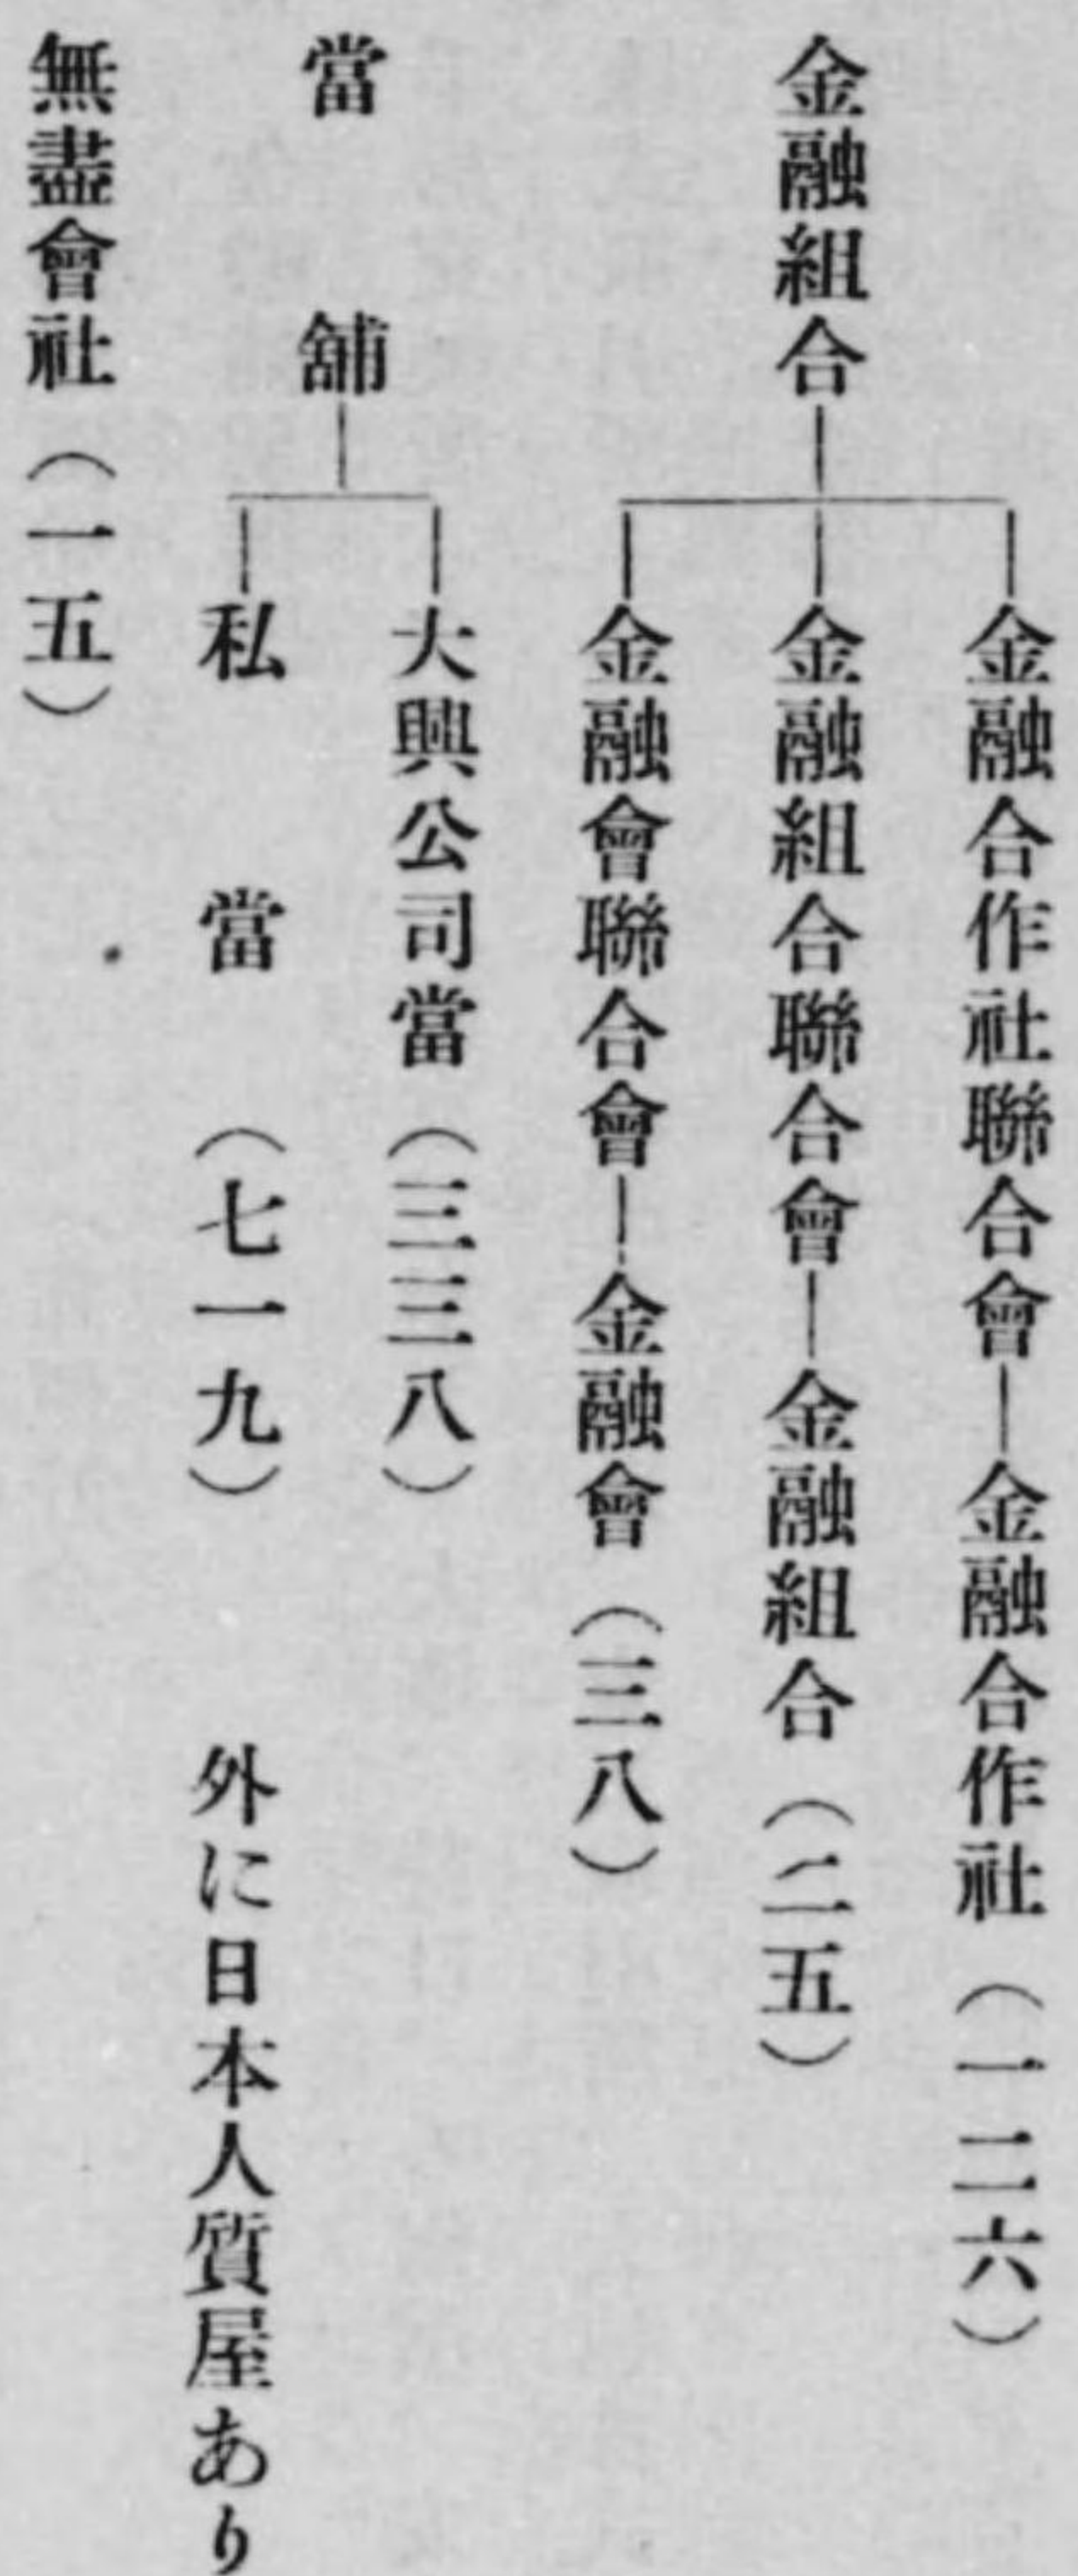 金融組合
金融合作社聯合會―金融合作社（一二六）
金融組合聯合會―金融組合（二五）
金融會聯合會―金融會（三八）
當舖
大興公司當（三三八）
私當（七一九）　外に日本人質屋あり
無盡會社（一五）